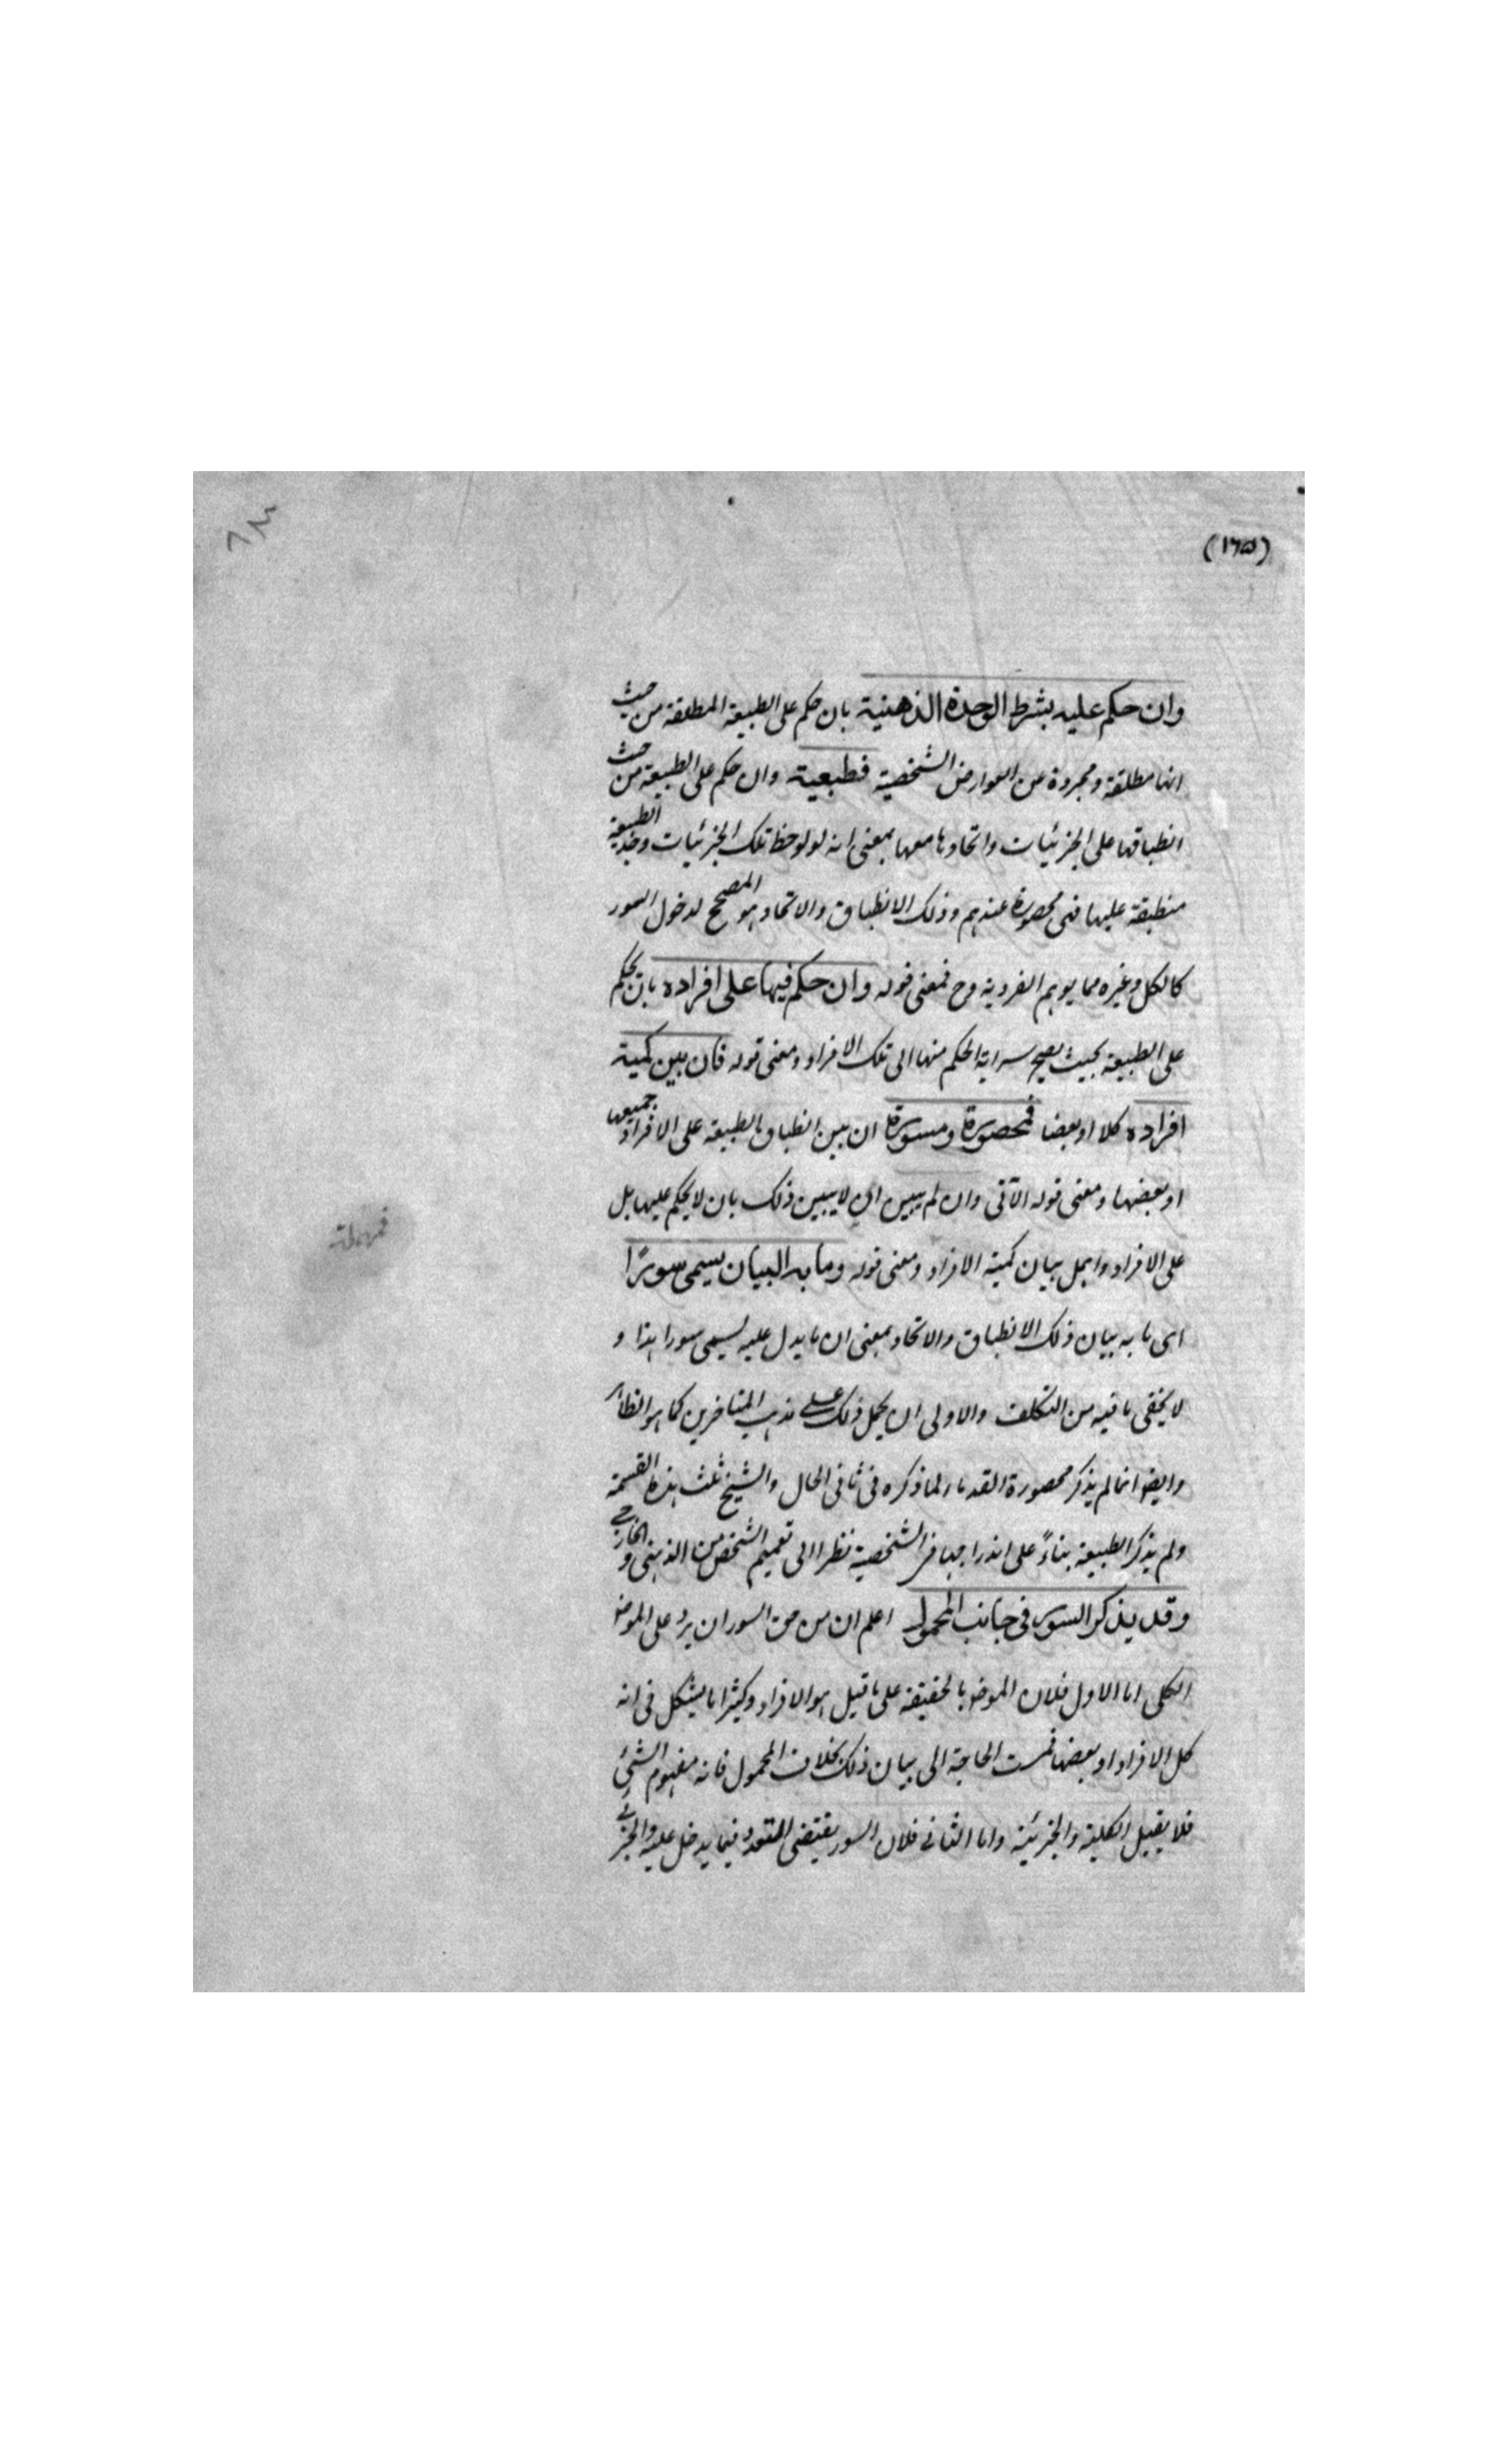 (١٦٥)
وان حكم عليه بشرط الوحدة الذهنية بان حكم على الطبيعة المطلقة من حيث
انها مطلقة ومجردة عن العوارض الشخصية فطبعية وان حكم على الطبيعة من حيث
انطباقها على الجزئيات واتحادها معها بمعنى انه لو لوحظ تلك الجزئيات وجد الطبيعة
منطبقة عليها فهى محصورة عندهم وذلك الانطباق والاتحاد هو المصحح لدخول السور
كالكل وغيره مما يوهم الفردية وح فمعنى قوله وان حكم فيها على افراده بان يحكم
على الطبيعة بحيث يصح سراية الحكم منها الى تلك الافراد ومعنى قوله فان بين كمية
افراده كلا او بعضا فمحصورة ومسورة ان بين انطباق الطبيعة على الافراد جميعها
او بعضها ومعنى قوله الآتى وان لم يبين اى لا يبين ذلك بان لا يحكم عليها بل
على الافراد واهمل بيان كمية الافراد ومعنى قوله وما به البيان يسمى سورًا
اى ما به بيان ذلك الانطباق والاتحاد بمعنى ان ما يدل عليه يسمى سورا هذا و
لا يخفى ما فيه من التكلف والاولى ان يحمل ذلك على مذهب المتاخرين كما هو الظاهر
وايضا انما لم يذكر محصورة القدماء لما ذكره فى ثانى الحال والشيخ ثلث هذه القسمة
ولم يذكر الطبيعة بناءً على اندراجها فى الشخصية نظرا الى تعميم الشخص من الذهنى و الخارجى
وقد يذكر السور فى جانب المحمول اعلم ان من حق السور ان يرد على الموضو
الكلى اما الاول فلان الموضو بالحقيقة على ما قيل هو الافراد وكثيرا ما يشكل فى انه
كل الافراد او بعضها فمست الحاجة الى بيان ذلك بخلاف المحمول فانه مفهوم الشئ
فلا يقبل الكلية والجزئية واما الثانى فلان السور يقتضى التعدد فيما يدخل عليه والجزئى
فمهملة